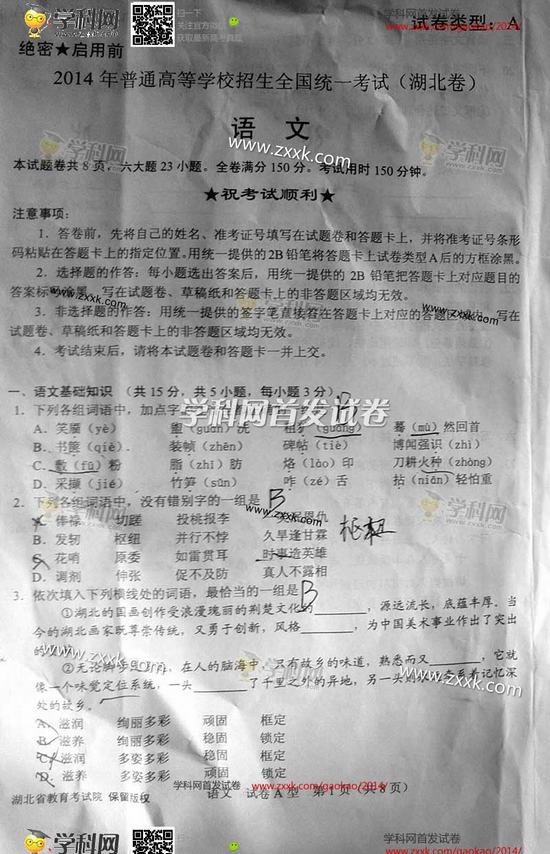 学科网
扫一扫
关注官方微信
获取最新高考真题
试卷类型：A
www.zxxk.com/gaokao/2014/
绝密★启用前
2014年普通高等学校招生全国统一考试（湖北卷）
语 文
学科网
www.zxxk.com
学科网
本试题卷共8页，六大题23小题。全卷满分150分。考试用时150分钟。
★祝考试顺利★
注意事项：
1．答卷前，先将自己的姓名、准考证号填写在试题卷和答题卡上，并将准考证号条形
码粘贴在答题卡上的指定位置。用统一提供的2B铅笔将答题卡上试卷类型A后的方框涂黑。
2．选择题的作答：每小题选出答案后，用统一提供的2B铅笔把答题卡上对应题目的
答案标号涂黑。写在试题卷、草稿纸和答题卡上的非答题区域均无效。
3．非选择题的作答：用统一提供的签字笔直接答在答题卡上对应的答题区域内。写在
试题卷、草稿纸和答题卡上的非答题区域均无效。
4．考试结束后，请将本试题卷和答题卡一并上交。
www.zxxk.com
一、语文基础知识（共15分，共5小题，每小题3分）
1．下列各组词语中，加点字
B
学科网首发试卷
A．笑靥（yè） 盥（guàn）洗 粗犷（guǎng） 蓦（mù）然回首
B．书箧（qiè） 装帧（zhēn） 碑帖（tiè） 博闻强识（zhì）
C．敷（fū）粉 脂（zhī）肪 烙（lào）印 刀耕火种（zhòng）
D．采撷（jié） 竹笋（sǔn） 咋（zé）舌 拈（niān）轻怕重
2．下列各组词语中，没有错别字的一组是 B
A．俸禄 切蹉 投桃报李
B．发轫 枢纽 并行不悖 久旱逢甘霖
枢纽
C．花哨 原委 如雷贯耳 时事造英雄
D．调剂 伸张 促不及防 真人不露相
3．依次填入下列横线处的词语，最恰当的一组是 B
①湖北的国画创作受浪漫瑰丽的荆楚文化的________，源远流长，底蕴丰厚。当
今的湖北画家既尊崇传统，又勇于创新，风格________，为中国美术事业作出了突出
②无论脚步走多远，在人的脑海中，只有故乡的味道，熟悉而又________，它就
像一个味觉定位系统，一头________了千里之外的异地，另一头则
着记忆深
处的故乡。
www.zxxk.com
A．滋润 绚丽多彩 顽固 框定
B．滋养 绚丽多彩 稳固 锁定
C．滋养 多姿多彩 稳固 框定
D．滋润 多姿多彩 顽固 锁定
学科网首发试卷
www.zxxk.com/gaokao/2014/
湖北省教育考试院 保留版权
语文 试卷A型 第1页（共8页）
学科网
学科网首发试卷
www.zxxk.com/gaokao/2014/